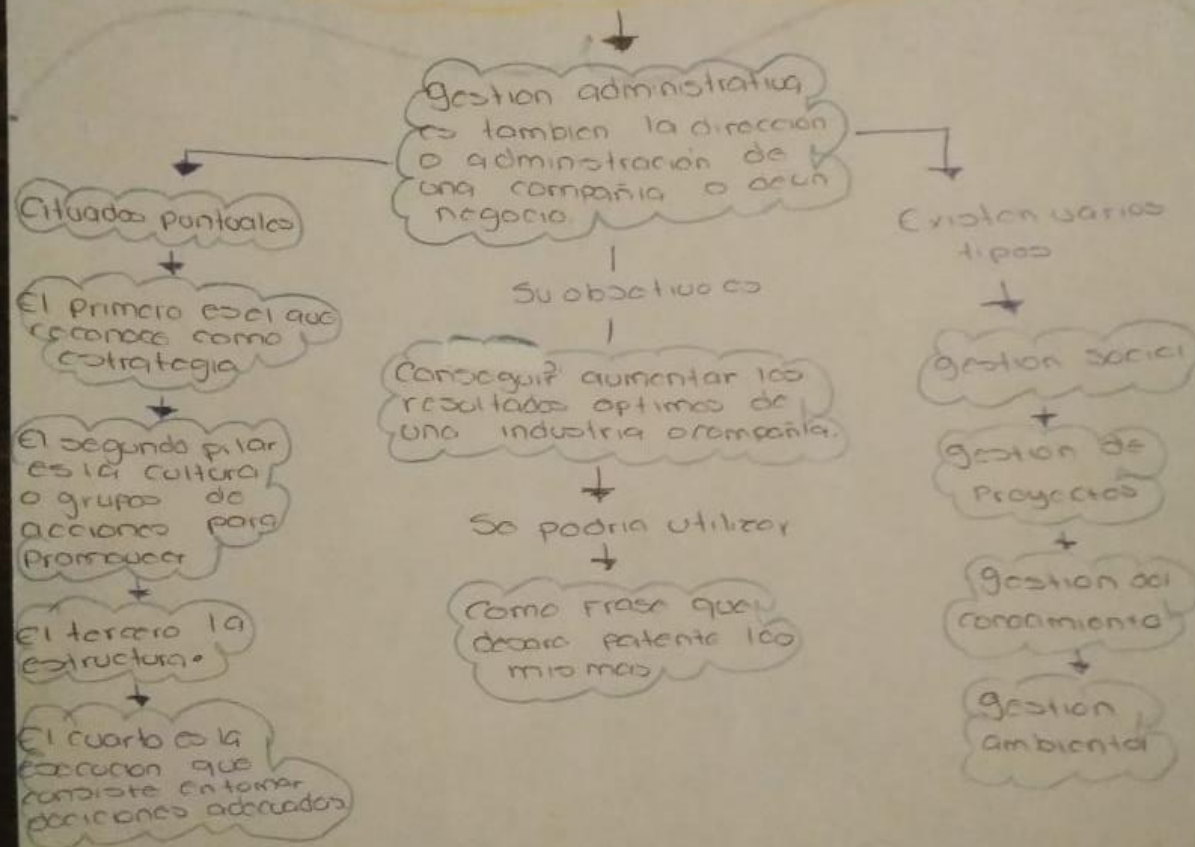 gestion administrativa
es tambien la dirección
o adminstración de
una compañia o de un
negocio.
Cituados puntuales
El primero es el que
se conoce como
estrategia
El segundo pilar
es la cultura
o grupos de
acciones para
promover
El tercero la
estructura.
El cuarto es la
ejecucion que
consiste en tomar
deciciones adecuadas
Su objetivo es
Conseguir aumentar los
resultados optimos de
una industria o compañia.
Se podria utilizar
Como frase que
dejara patente los
mismas
Existen varios
tipos
gestion social
gestion de
Proyectos
gestion del
conocimiento
gestion
ambiental